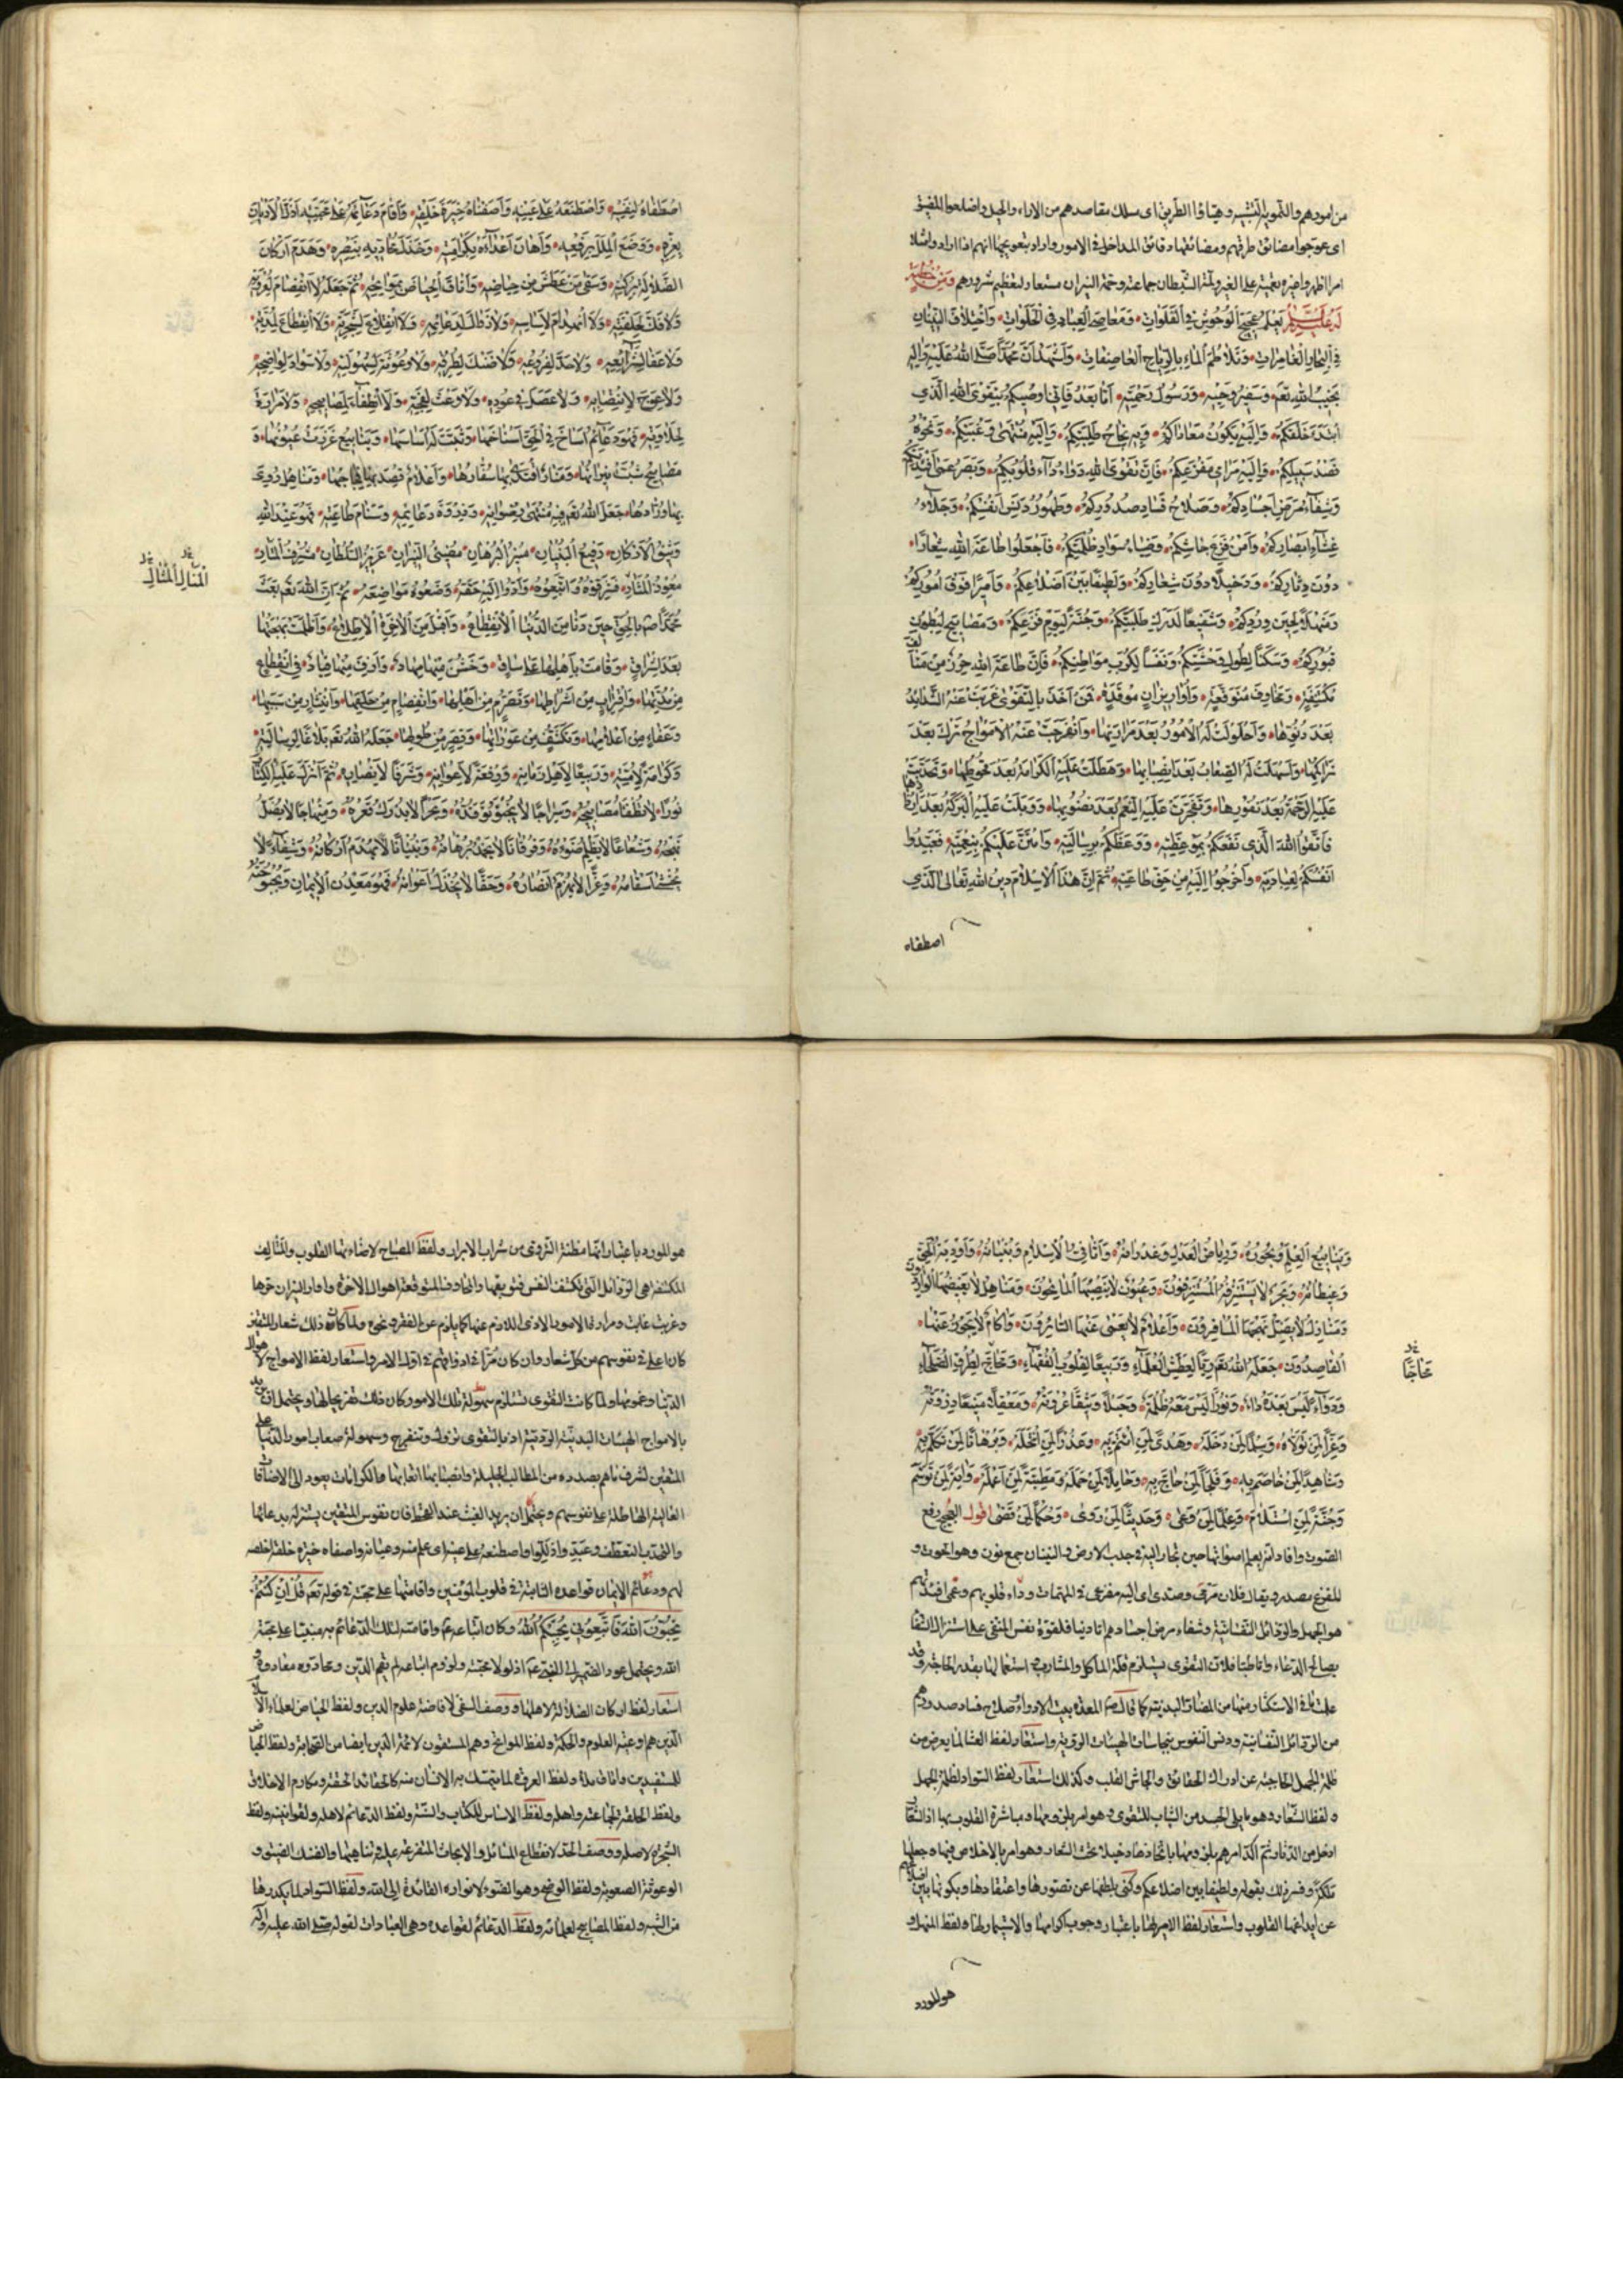 من امورهم والتمويه التشبيه وهيّاوا الطريق اى سلك مقاصدهم من الاراء والحيل واضلعوا المضيق
اى عوّجوا مضائق طرقهم ومضائقها دقائق المداخل فى الامور واراد بتعويجها انهم اذا ارادوا مثلا
امرا اظهروا غيره تعمية على الغير ولمّة الشيطان جماعته وحمّة النيران مستعار لمعظم شرورهم ومن خطبة
له عليه السلام يَعْلَمُ عَجِيجَ الْوُحُوشِ فِي الْفَلَوَاتِ وَمَعَاصِيَ الْعِبَادِ فِي الْخَلَوَاتِ وَاخْتِلَافَ النِّينَانِ
فِي الْبِحَارِ الْغَامِرَاتِ وَتَلَاطُمَ الْمَاءِ بِالرِّيَاحِ الْعَاصِفَاتِ وَأَشْهَدُ أَنَّ مُحَمَّدًا صَلَّى اللهُ عَلَيْهِ وَآلِهِ
نَجِيبُ اللهِ تعم وَسَفِيرُ وَحْيِهِ وَرَسُولُ رَحْمَتِهِ أَمَّا بَعْدُ فَإِنِّي أُوصِيكُمْ بِتَقْوَى اللهِ الَّذِي
ابْتَدَأَ خَلْقَكُمْ وَإِلَيْهِ يَكُونُ مَعَادُكُمْ وَبِهِ نَجَاحُ طَلِبَتِكُمْ وَإِلَيْهِ مُنْتَهَى رَغْبَتِكُمْ وَنَحْوَهُ
قَصْدُ سَبِيلِكُمْ وَإِلَيْهِ مَرَامِي مَفْزَعِكُمْ فَإِنَّ تَقْوَى اللهِ دَوَاءُ دَاءِ قُلُوبِكُمْ وَبَصَرُ عَمَى أَفْئِدَتِكُمْ
وَشِفَاءُ مَرَضِ أَجْسَادِكُمْ وَصَلَاحُ فَسَادِ صُدُورِكُمْ وَطَهُورُ دَنَسِ أَنْفُسِكُمْ وَجَلَاءُ
غِشَاءِ أَبْصَارِكُمْ وَأَمْنُ فَزَعِ جَأْشِكُمْ وَضِيَاءُ سَوَادِ ظُلْمَتِكُمْ فَاجْعَلُوا طَاعَةَ اللهِ شِعَارًا
دُونَ دِثَارِكُمْ وَدَخِيلًا دُونَ شِعَارِكُمْ وَلَطِيفًا بَيْنَ أَضْلَاعِكُمْ وَأَمِيرًا فَوْقَ أُمُورِكُمْ
وَمَنْهَلًا لِحِينِ وُرُودِكُمْ وَشَفِيعًا لِدَرَكِ طَلِبَتِكُمْ وَجُنَّةً لِيَوْمِ فَزَعِكُمْ وَمَصَابِيحَ لِبُطُونِ
قُبُورِكُمْ وَسَكَنًا لِطُولِ وَحْشَتِكُمْ وَنَفَسًا لِكُرَبِ مَوَاطِنِكُمْ فَإِنَّ طَاعَةَ اللهِ حِرْزٌ مِنْ مَتَالِفَ
مُكْتَنِفَةٍ وَمَخَاوِفَ مُتَوَقَّعَةٍ وَأُوَارِ نِيرَانٍ مُوقَدَةٍ فَمَنْ أَخَذَ بِالتَّقْوَى عَزَبَتْ عَنْهُ الشَّدَائِدُ
بَعْدَ دُنُوِّهَا وَاحْلَوْلَتْ لَهُ الْأُمُورُ بَعْدَ مَرَارَتِهَا وَانْفَرَجَتْ عَنْهُ الْأَمْوَاجُ تَرَاكَ بَعْدَ
تَرَاكُمِهَا وَأَسْهَلَتْ لَهُ الصِّعَابُ بَعْدَ إِنْصَابِهَا وَهَطَلَتْ عَلَيْهِ الْكَرَامَةُ بَعْدَ قُحُوطِهَا وَتَحَدَّبَتْ
عَلَيْهِ الرَّحْمَةُ بَعْدَ نُفُورِهَا وَتَفَجَّرَتْ عَلَيْهِ النِّعَمُ بَعْدَ نُضُوبِهَا وَوَبَلَتْ عَلَيْهِ الْبَرَكَةُ بَعْدَ إِرْذَاذِهَا
فَاتَّقُوا اللهَ الَّذِي نَفَعَكُمْ بِمَوْعِظَتِهِ وَوَعَظَكُمْ بِرِسَالَتِهِ وَامْتَنَّ عَلَيْكُمْ بِنِعْمَتِهِ فَعَبِّدُوا
أَنْفُسَكُمْ لِعِبَادَتِهِ وَاخْرُجُوا إِلَيْهِ مِنْ حَقِّ طَاعَتِهِ ثُمَّ إِنَّ هَذَا الْإِسْلَامَ دِينُ اللهِ تَعَالَى الَّذِي
اصطفاه
اصْطَفَاهُ لِنَفْسِهِ وَاصْطَنَعَهُ عَلَى عَيْنِهِ وَأَصْفَاهُ خِيَرَةَ خَلْقِهِ وَأَقَامَ دَعَائِمَهُ عَلَى مَحَبَّتِهِ أَذَلَّ الْأَدْيَانَ
بِعِزِّهِ وَوَضَعَ الْمِلَلَ بِرَفْعِهِ وَأَهَانَ أَعْدَاءَهُ بِكَرَامَتِهِ وَخَذَلَ مُحَادِّيهِ بِنَصْرِهِ وَهَدَمَ أَرْكَانَ
الضَّلَالَةِ بِرُكْنِهِ وَسَقَى مَنْ عَطِشَ مِنْ حِيَاضِهِ وَأَتْأَقَ الْحِيَاضَ بِمَوَاتِحِهِ ثُمَّ جَعَلَهُ لَا انْفِصَامَ لِعُرْوَتِهِ
وَلَا فَكَّ لِحَلْقَتِهِ وَلَا انْهِدَامَ لِأَسَاسِهِ وَلَا زَوَالَ لِدَعَائِمِهِ وَلَا انْقِلَاعَ لِشَجَرَتِهِ وَلَا انْقِطَاعَ لِمُدَّتِهِ
وَلَا عَفَاءَ لِشَرَائِعِهِ وَلَا جَذَّ لِفُرُوعِهِ وَلَا ضَنْكَ لِطُرُقِهِ وَلَا وُعُوثَةَ لِسُهُولَتِهِ وَلَا سَوَادَ لِوَضَحِهِ
وَلَا عِوَجَ لِانْتِصَابِهِ وَلَا عَصَلَ فِي عُودِهِ وَلَا وَعَثَ لِفَجِّهِ وَلَا انْطِفَاءَ لِمَصَابِيحِهِ وَلَا مَرَارَةَ
لِحَلَاوَتِهِ فَهُوَ دَعَائِمُ أَسَاخَ فِي الْحَقِّ أَسْنَاخَهَا وَثَبَّتَ لَهَا أَسَاسَهَا وَيَنَابِيعُ غَزُرَتْ عُيُونُهَا وَ
مَصَابِيحُ شَبَّتْ نِيرَانُهَا وَمَنَارٌ اقْتَدَى بِهَا سُفَّارُهَا وَأَعْلَامٌ قُصِدَ بِهَا فِجَاجُهَا وَمَنَاهِلُ رَوِيَ
بِهَا وُرَّادُهَا جَعَلَ اللهُ تعم فِيهِ مُنْتَهَى رِضْوَانِهِ وَذِرْوَةَ دَعَائِمِهِ وَسَنَامَ طَاعَتِهِ فَهُوَ عِنْدَ اللهِ
وَثِيقُ الْأَرْكَانِ رَفِيعُ الْبُنْيَانِ مُنِيرُ الْبُرْهَانِ مُضِيءُ النِّيرَانِ عَزِيزُ السُّلْطَانِ مُشْرِفُ الْمَنَارِ
المنال المثال
مُعْوِذُ الْمَثَارِ فَشَرِّفُوهُ وَاتَّبِعُوهُ وَأَدُّوا إِلَيْهِ حَقَّهُ وَضَعُوهُ مَوَاضِعَهُ ثُمَّ إِنَّ اللهَ تعم بَعَثَ
مُحَمَّدًا صم بِالْحَقِّ حِينَ دَنَا مِنَ الدُّنْيَا الْانْقِطَاعُ وَأَقْبَلَ مِنَ الْآخِرَةِ الْاطِّلَاعُ وَأَظْلَمَتْ بَهْجَتُهَا
بَعْدَ إِشْرَاقٍ وَقَامَتْ بِأَهْلِهَا عَلَى سَاقٍ وَخَشُنَ مِنْهَا مِهَادٌ وَأَزِفَ مِنْهَا قِيَادٌ فِي انْقِطَاعٍ
مِنْ مُدَّتِهَا وَاقْتِرَابٍ مِنْ أَشْرَاطِهَا وَتَصَرُّمٍ مِنْ أَهْلِهَا وَانْفِصَامٍ مِنْ حَلْقَتِهَا وَانْتِشَارٍ مِنْ سَبَبِهَا
وَعَفَاءٍ مِنْ أَعْلَامِهَا وَتَكَشُّفٍ مِنْ عَوْرَاتِهَا وَقِصَرٍ مِنْ طُولِهَا جَعَلَهُ اللهُ تعم بَلَاغًا لِرِسَالَتِهِ
وَكَرَامَةً لِأُمَّتِهِ وَرَبِيعًا لِأَهْلِ زَمَانِهِ وَرِفْعَةً لِأَعْوَانِهِ وَشَرَفًا لِأَنْصَارِهِ ثُمَّ أَنْزَلَ عَلَيْهِ الْكِتَابَ
نُورًا لَا تُطْفَأُ مَصَابِيحُهُ وَسِرَاجًا لَا يَخْبُو تَوَقُّدُهُ وَبَحْرًا لَا يُدْرَكُ قَعْرُهُ وَمِنْهَاجًا لَا يُضِلُّ
نَهْجُهُ وَشُعَاعًا لَا يُظْلِمُ ضَوْءُهُ وَفُرْقَانًا لَا يُخْمَدُ بُرْهَانُهُ وَبُنْيَانًا لَا تُهْدَمُ أَرْكَانُهُ وَشِفَاءً لَا
تُخْشَى أَسْقَامُهُ وَعِزًّا لَا تُهْزَمُ أَنْصَارُهُ وَحَقًّا لَا تُخْذَلُ أَعْوَانُهُ فَهُوَ مَعْدِنُ الْإِيمَانِ وَبُحْبُوحَتُهُ
وَيَنَابِيعُ الْعِلْمِ وَبُحُورُهُ وَرِيَاضُ الْعَدْلِ وَغُدْرَانُهُ وَأَثَافِيُّ الْإِسْلَامِ وَبُنْيَانُهُ وَأَوْدِيَةُ الْحَقِّ
وَغِيطَانُهُ وَبَحْرٌ لَا يَسْتَنْزِفُهُ الْمُسْتَنْزِفُونَ وَعُيُونٌ لَا يُنْضِبُهَا الْمَاتِحُونَ وَمَنَاهِلُ لَا يَغِيضُهَا الْوَارِدُونَ
وَمَنَازِلُ لَا يَضِلُّ نَهْجَهَا الْمُسَافِرُونَ وَأَعْلَامٌ لَا يَعْمَى عَنْهَا السَّائِرُونَ وَآكَامٌ لَا يَجُوزُ عَنْهَا
الْقَاصِدُونَ جَعَلَهُ اللهُ تعم رِيًّا لِعَطَشِ الْعُلَمَاءِ وَرَبِيعًا لِقُلُوبِ الْفُقَهَاءِ وَمَحَاجَّ لِطُرُقِ الصُّلَحَاءِ
محاجًّا
وَدَوَاءً لَيْسَ بَعْدَهُ دَاءٌ وَنُورًا لَيْسَ مَعَهُ ظُلْمَةٌ وَحَبْلًا وَثِيقًا عُرْوَتُهُ وَمَعْقِلًا مَنِيعًا ذِرْوَتُهُ
وَعِزًّا لِمَنْ تَوَلَّاهُ وَسِلْمًا لِمَنْ دَخَلَهُ وَهُدًى لِمَنِ ائْتَمَّ بِهِ وَعُذْرًا لِمَنِ انْتَحَلَهُ وَبُرْهَانًا لِمَنْ تَكَلَّمَ بِهِ
وَشَاهِدًا لِمَنْ خَاصَمَ بِهِ وَفَلْجًا لِمَنْ حَاجَّ بِهِ وَحَامِلًا لِمَنْ حَمَلَهُ وَمَطِيَّةً لِمَنْ أَعْمَلَهُ وَآيَةً لِمَنْ تَوَسَّمَ
وَجُنَّةً لِمَنِ اسْتَلْأَمَ وَعِلْمًا لِمَنْ وَعَى وَحَدِيثًا لِمَنْ رَوَى وَحُكْمًا لِمَنْ قَضَى اقول العجيج رفع
الصوت وافاد انه يعلم اصواتها حين تجأر اليه فى جدب الارض والنينان جمع نون وهو الحوت و
المفزع مصدر ويقال فلان مرمى وصدى اى اليه مفزعى فى المهمات وداء قلوبهم وعمى افئدتهم
هو الجهل والرذائل النفسانية وشفاء مرض اجسادهم اما دنيا فلقوة نفس المتقى على استنزال الشفا
بصالح الدعاء واما طبّا فلان التقوى يستلزم قلة المآكل والمشارب استعمالها بقدر الحاجة وقد
علمت ما فى الاستكثار منها من المضار البدنية كما قال صم المعدة بيت الادواء وصلاح فساد صدورهم
من الرذائل النفسانية ودنس النفوس بنجاسات الهيئات الردية واستعار لفظ الغشا لما يعرض من
ظلمة الجهل الحاجبة عن ادراك الحقائق والجاش القلب وكذلك استعار لفظ السواد لظلمة الجهل
ولفظ الشعار وهو ما يلى الجسد من الثياب للتقوى وهو امر بلزومها ومباشرة القلوب بها اذ الشعار
ادخل من الدثار ثم اكد امرهم بلزومها باتخاذها دخيلا تحت الشعار وهو امر بالاخلاص فيها وجعلها
ملكة وفسر ذلك بقوله ولطيفا بين اضلاعكم وكنى بلطفها عن تصورها واعتقادها وبكونها بين اضلاعهم
عن ايداعها القلوب واستعار لفظ الامير لها باعتبار وجوب اكرامها والايتمار لها ولفظ المنهل و
هو المورد
هو المورد باعتبار انها مظنة التروى من شراب الابرار ولفظ المصباح لاضاءتها القلوب والمتالف
المكتنفة هى الرذائل التى تكتنف النفس فتوبقها والمخاوف المتوقعة اهوال الاخرة واوار النيران حرها
وعزبت غابت ومرارة الامور الاذى اللازم عنها كما يلزم عن الفقر وغيره ولما كان ذلك شعار المتقين
كان احلى فى نفوسهم من كل شعار وان كان مُرّا فى اذواقهم فى اول الامر واستعار لفظ الامواج لاهوال
الدنيا وغمومها ولما كانت التقوى تستلزم سهولة تلك الامور كان ذلك تفريجا لها ويحتمل ان يريد
بالامواج الهيئات البدنية الردية اذ بالتقوى تزول وتنفرج وسهولة صعاب امور الدنيا على
المتقين لشرف ما هم بصدده من المطالب الجليلة وانصابها اتعابها والكرامات يعود الى الافاضات
العالية الهاطلة على نفوسهم ويحتمل ان يريد الغيث عند القحط فان نفوس المتقين يستنزله بدعائها
والتحدب التعطف وعبّدوا ذللوا واصطنعه على عينه اى على علم منه وعناية واصفاه خيرة خلقه اخلصه
لهم ودعائم الايمان قواعده الثابتة فى قلوب المؤمنين واقامتها على محبته فى قوله تعم قُلْ إِنْ كُنْتُمْ
تُحِبُّونَ اللهَ فَاتَّبِعُونِي يُحْبِبْكُمُ اللهُ وكان اتباعه عم واقامته لتلك الدعائم به مبنيّا على محبة
الله ويحتمل عود الضمير الى النبى عم اذ لولا محبته ولزوم اتباعه لم يقم الدين ومحادوه معادوه و
استعار لفظ اركان الضلالة لاهلها ووصف السقى لافاضة علوم الدين ولفظ الحياض لعلماء الاسلام
الذين هم اوعية العلوم والحكمة ولفظ المواتح وهم المستقون لائمة الدين ايضا من الصحابة ولفظ الحياض
للمستفيدين واتاق ملأ ولفظ العروة لما يتمسك به الانسان منه كالعقائد الحقة ومكارم الاخلاق
ولفظ الحلقة لجماعته واهله ولفظ الاساس للكتاب والسنة ولفظ الدعائم لاهله ولقوانينه ولفظ
الشجرة لاصله ووصف الجذ لانقطاع المسائل والابحاث المتفرعة عليه وتناهيها والضنك الضيق و
الوعوثة الصعوبة ولفظ الوضح وهو الضوء لانواره القائدة الى الله ولفظ السواد لما يكدرها
من الشبه ولفظ المصابيح لعلمائه ولفظ الدعائم لقواعده وهى العبادات لقوله صلى الله عليه وآله